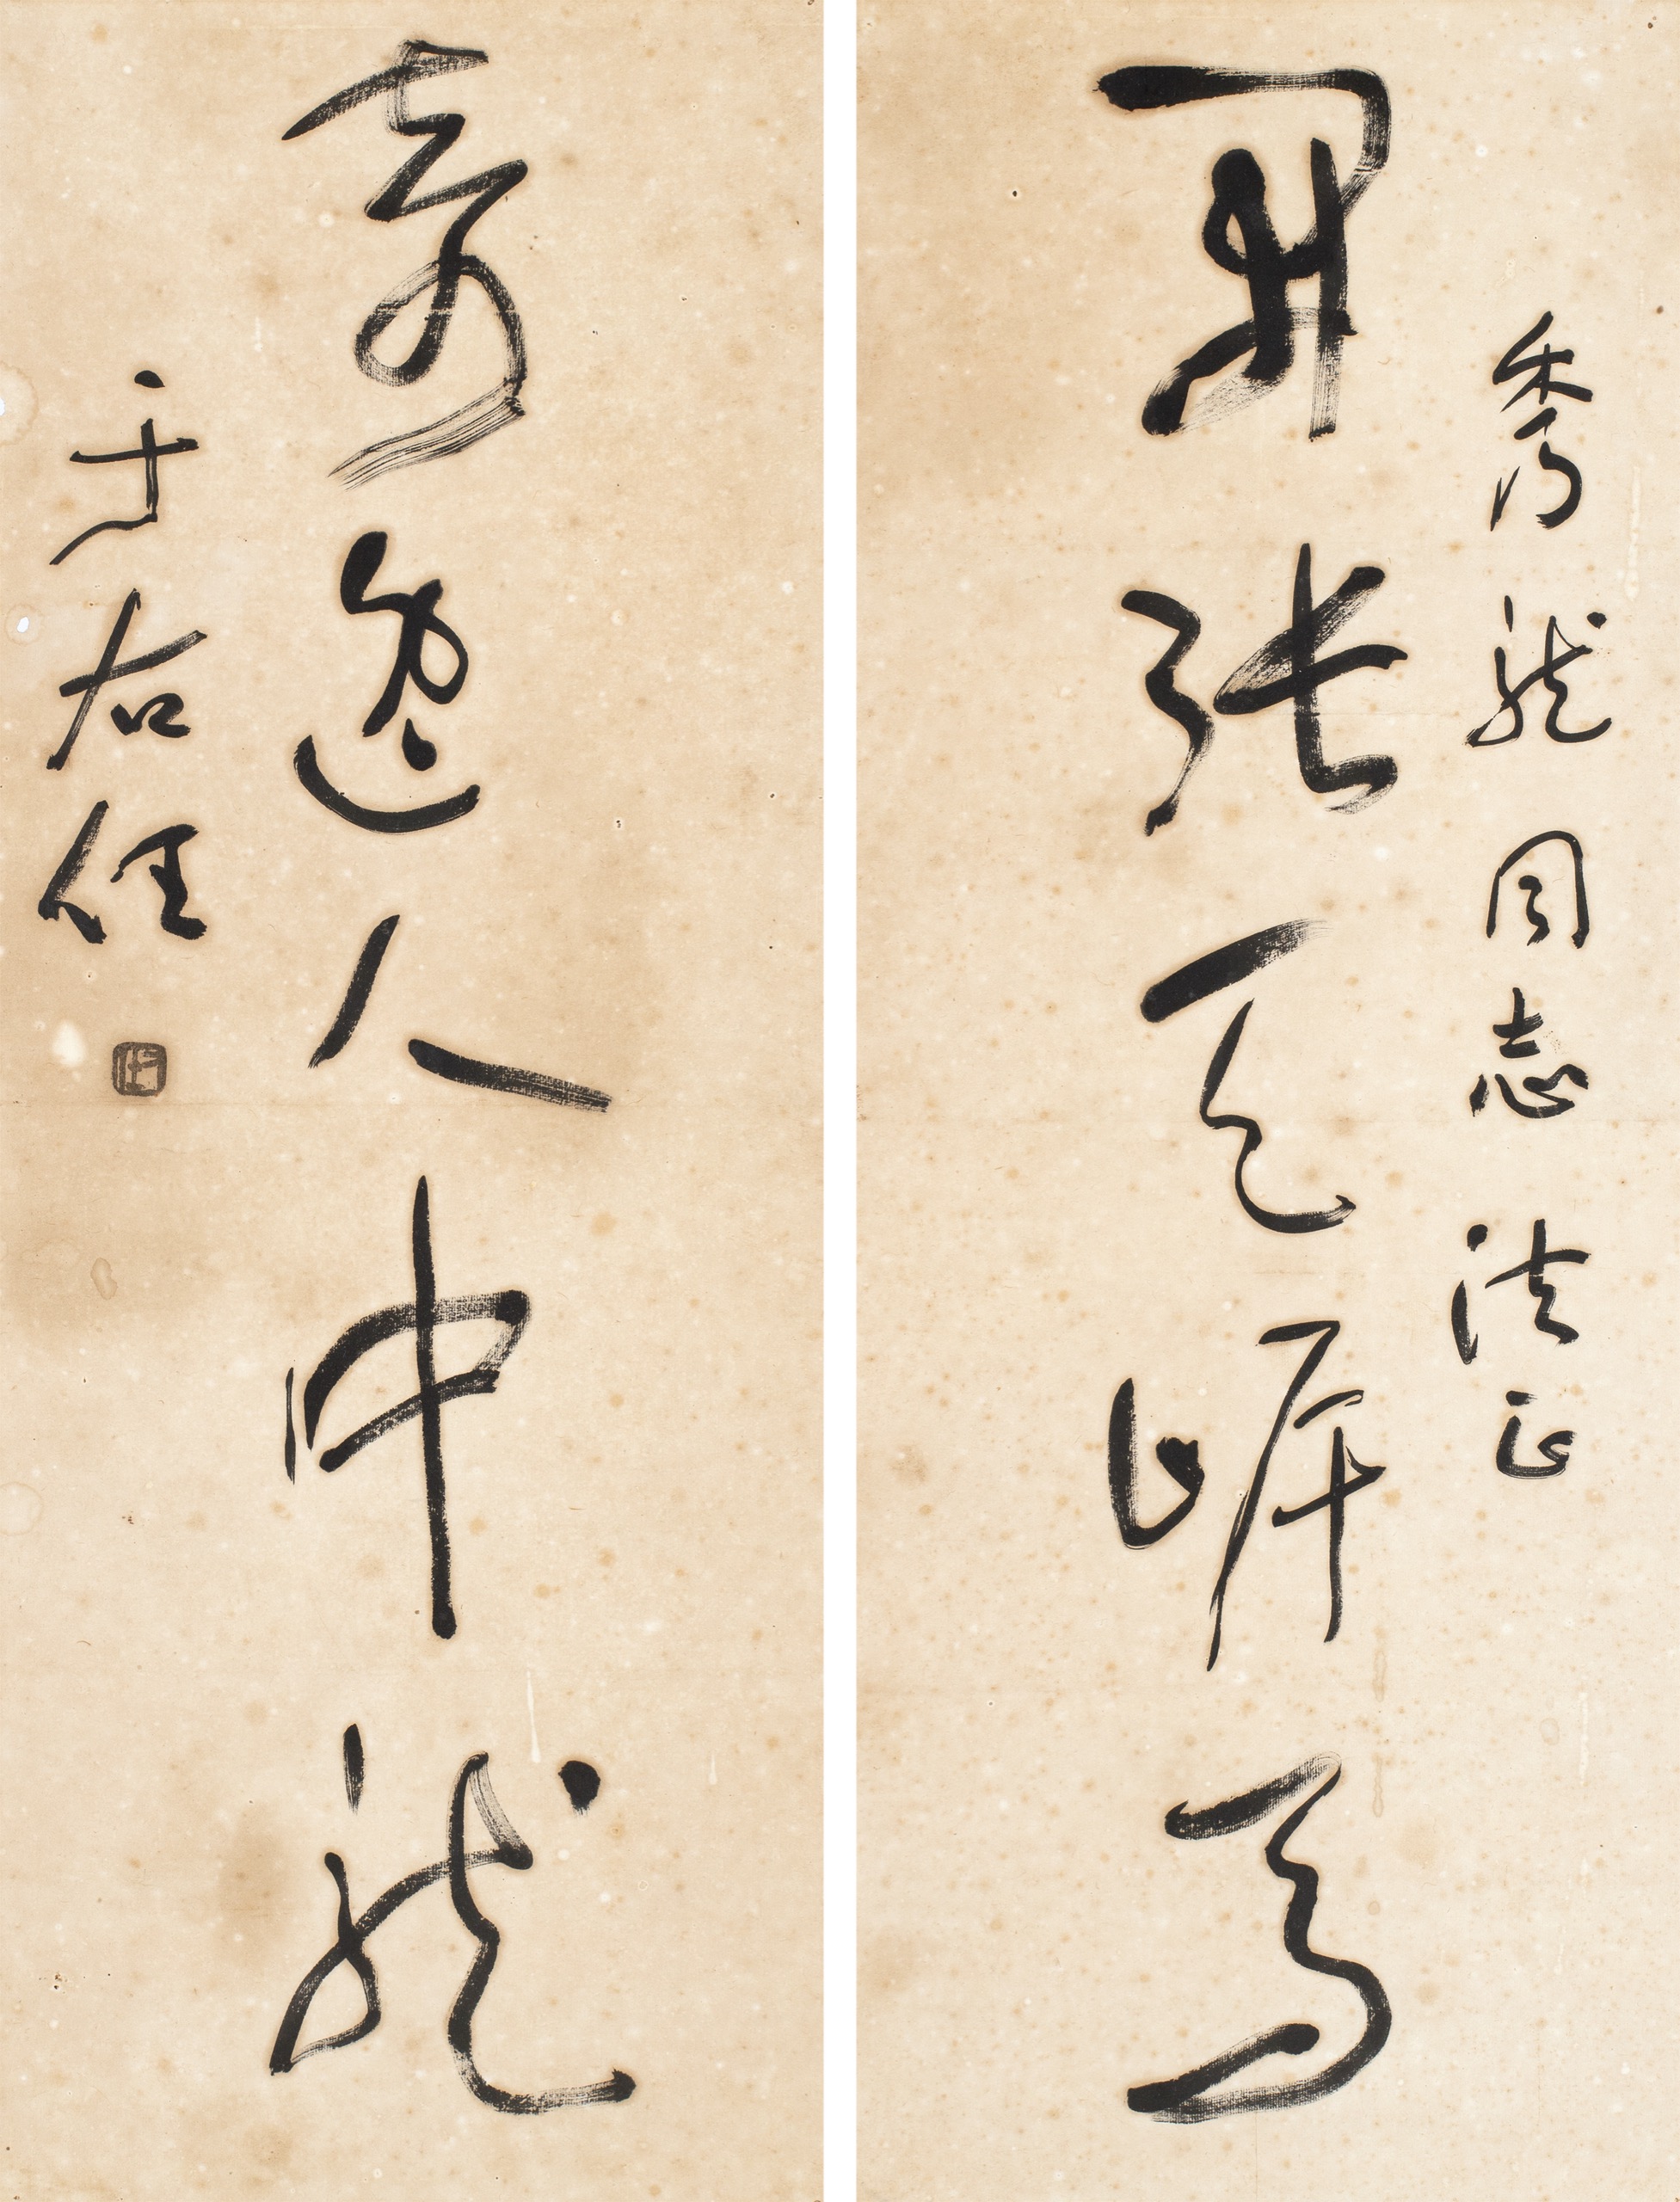 秀龍同志 法正
開張天岸馬
奇逸人中龍
于右任